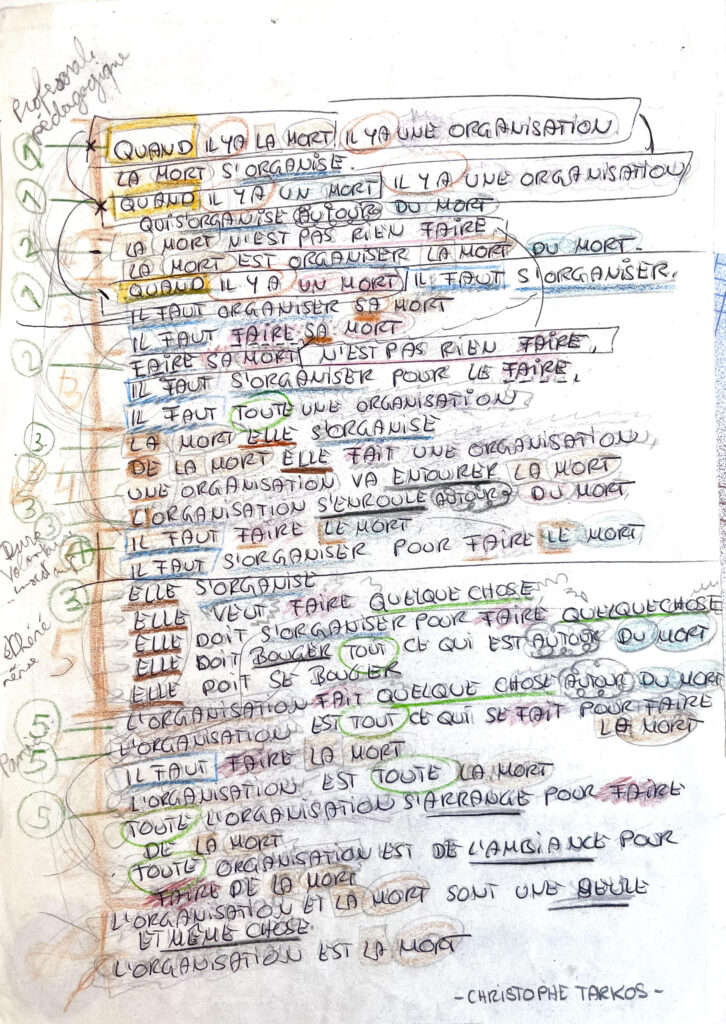 Professorale
pédagogique
QUAND IL YA LA MORT IL YA UNE ORGANISATION
LA MORT S'ORGANISE.
QUAND IL Y A UN MORT IL Y A UNE ORGANISATION
QUI S'ORGANISE AUTOUR DU MORT
LA MORT N'EST PAS RIEN FAIRE
LA MORT EST ORGANISER LA MORT DU MORT.
QUAND IL Y A UN MORT IL FAUT S'ORGANISER.
IL FAUT ORGANISER SA MORT
IL FAUT FAIRE SA MORT
FAIRE SA MORT N'EST PAS RIEN FAIRE,
IL FAUT S'ORGANISER POUR LE FAIRE,
IL FAUT TOUTE UNE ORGANISATION
LA MORT ELLE S'ORGANISE
DE LA MORT ELLE FAIT UNE ORGANISATION,
UNE ORGANISATION VA ENTOURER LA MORT
L'ORGANISATION S'ENROULE AUTOUR DU MORT,
IL FAUT FAIRE LE MORT,
IL FAUT S'ORGANISER POUR FAIRE LE MORT
ELLE S'ORGANISE
ELLE VEUT FAIRE QUELQUE CHOSE,
ELLE DOIT S'ORGANISER POUR FAIRE QUELQUE CHOSE
ELLE DOIT BOUGER TOUT CE QUI EST AUTOUR DU MORT
ELLE DOIT SE BOUGER
L'ORGANISATION FAIT QUELQUE CHOSE AUTOUR DU MORT
L'ORGANISATION EST TOUT CE QUI SE FAIT POUR FAIRE
LA MORT
IL FAUT FAIRE LA MORT
L'ORGANISATION EST TOUTE LA MORT
TOUTE L'ORGANISATION S'ARRANGE POUR FAIRE
DE LA MORT
TOUTE ORGANISATION EST DE L'AMBIANCE POUR
FAIRE DE LA MORT
L'ORGANISATION ET LA MORT SONT UNE SEULE
ET MÊME CHOSE.
L'ORGANISATION EST LA MORT
- CHRISTOPHE TARKOS -
1
1
2
1
2
3
3
3
4
3
5
5
5